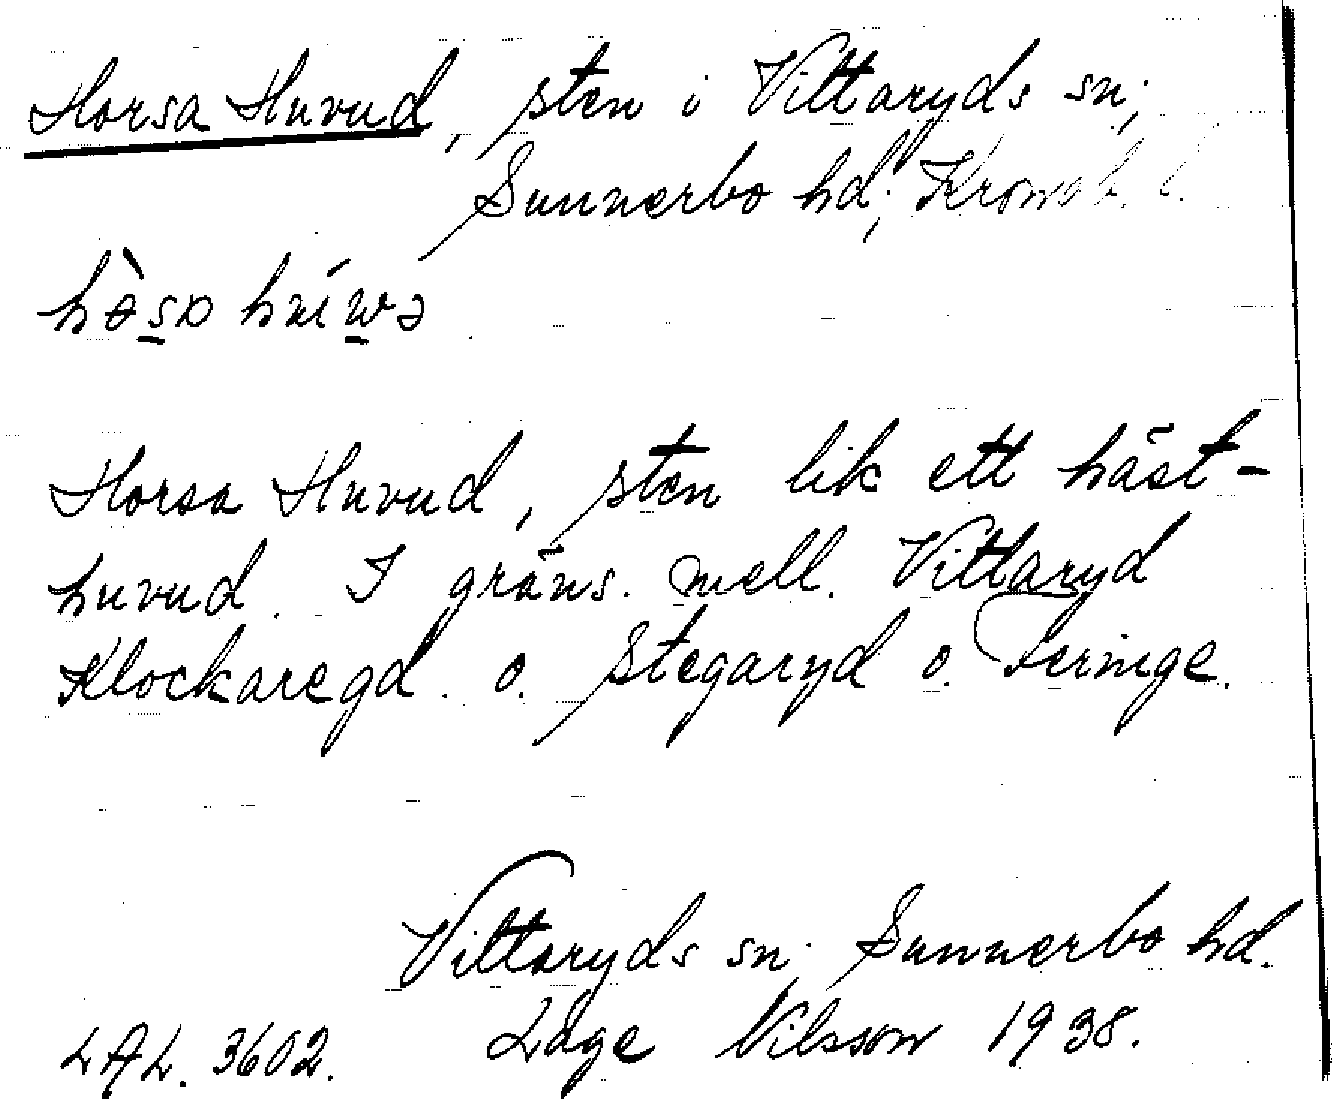 Horsa Huvud, sten i Vittaryds sn;
Sunnerbo hd; Kronob. l.
Horsa Huvud, sten lik ett häst-
huvud. I gräns. mell. Vittaryd
Klockaregd. o. Stegaryd o. Toringe.
Vittaryds sn; Sunnerbo hd.
LAL. 3602. Låge Nilsson 1938.